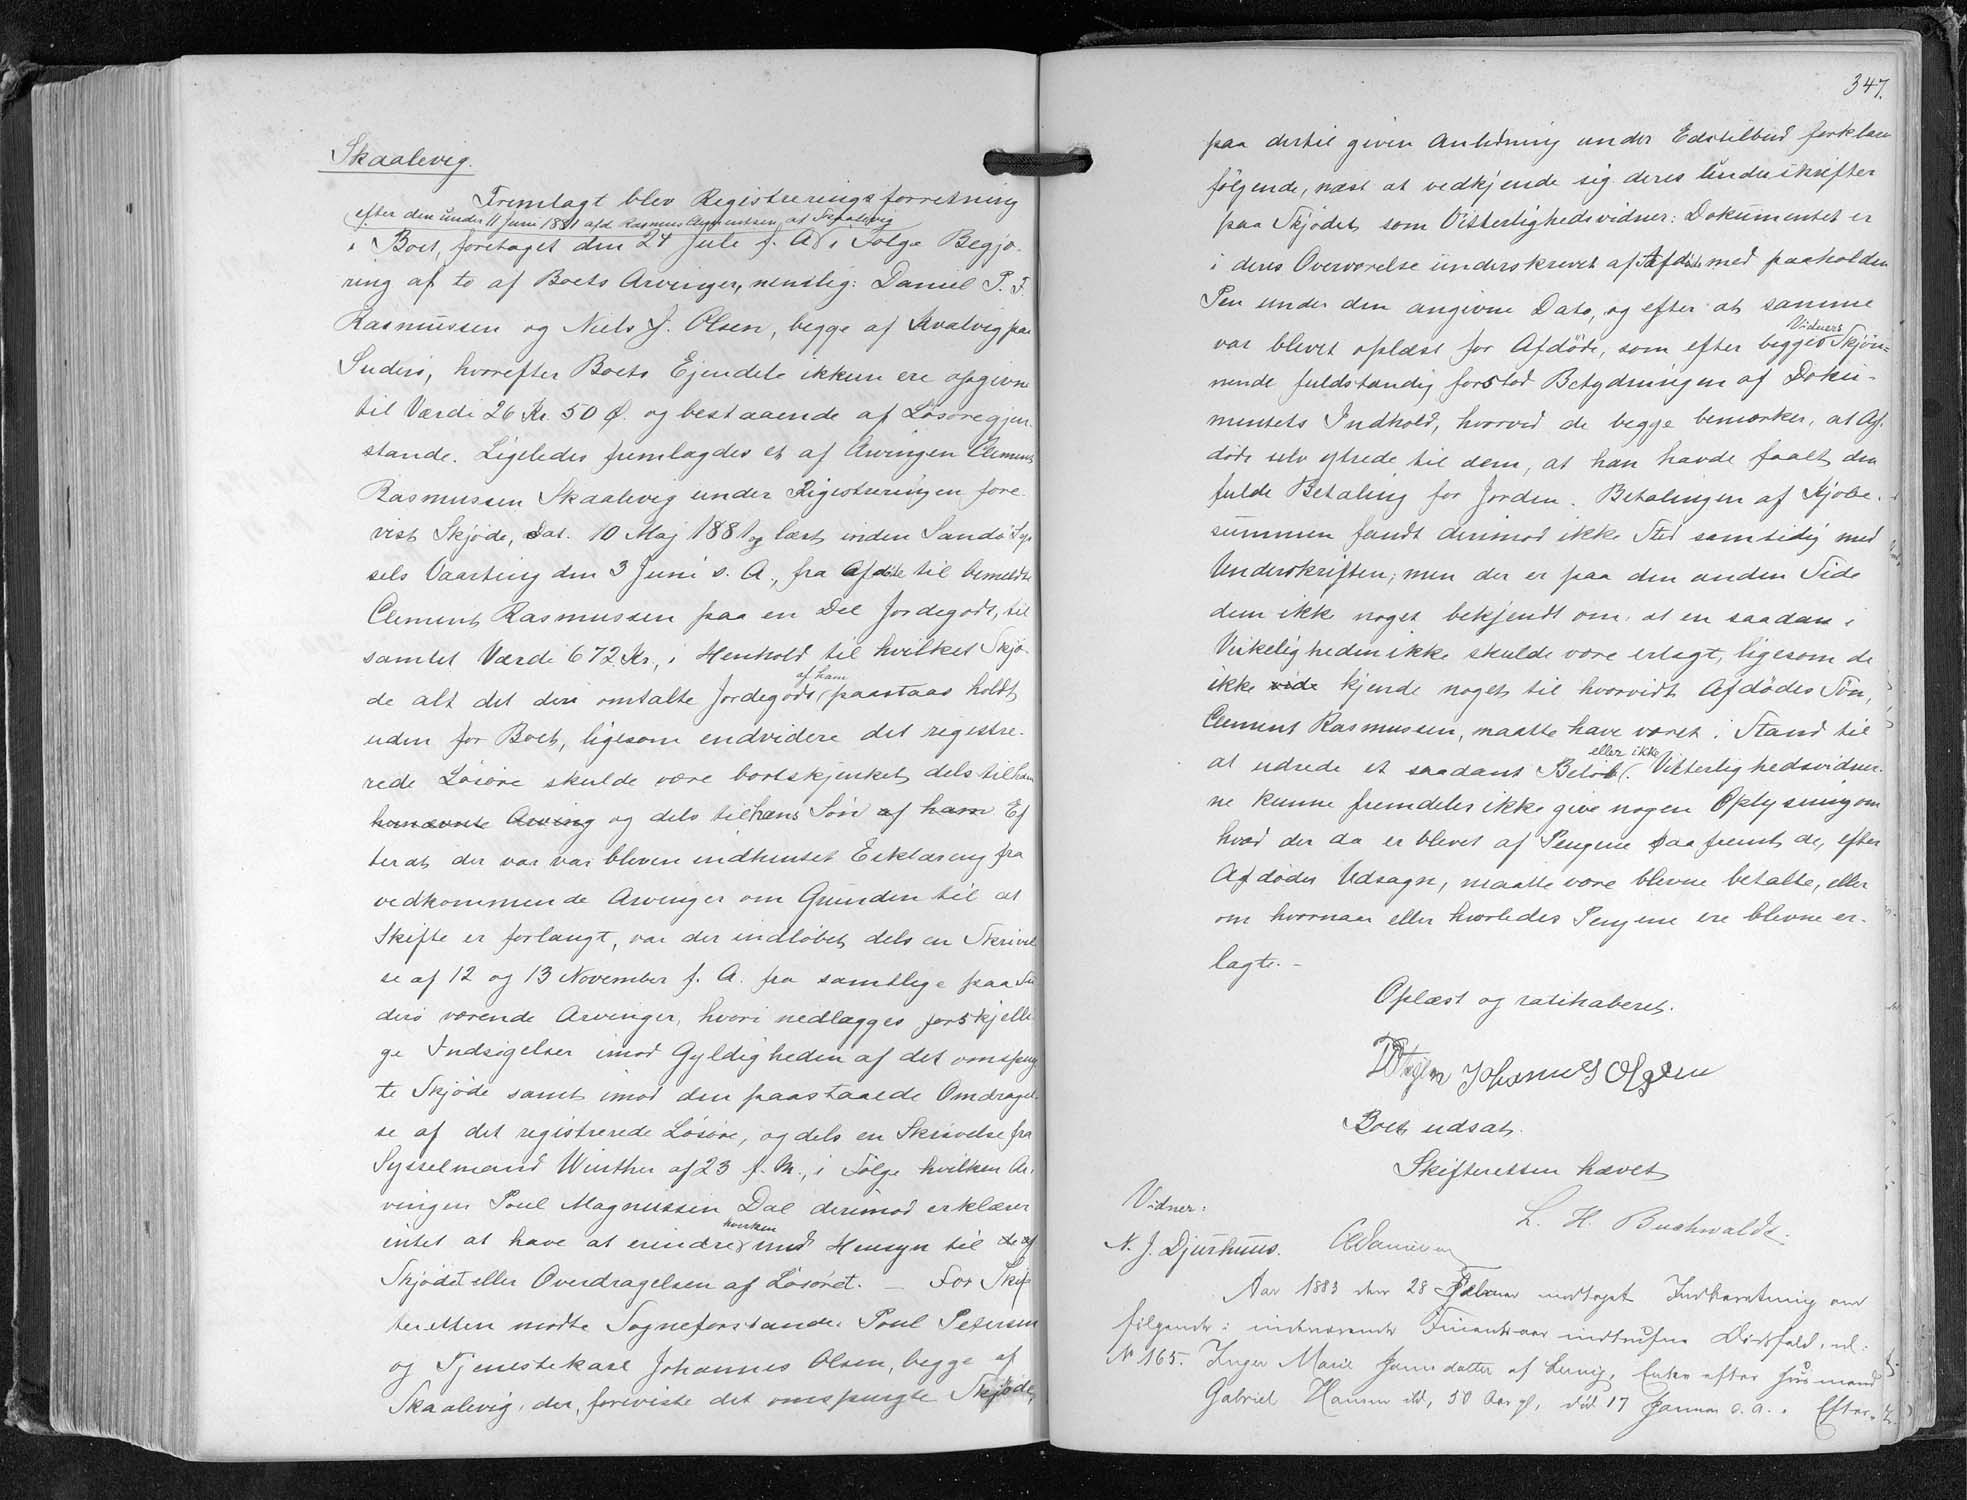 Skaalevig.
Fremlagt blev Registreringsforretning
efter den under 11 Juni 1881 afd. Rasmus Clementsen af Skaalevig
i Boet, foretaget den 24 Juli f. A. i Følge Begjæ-
ring af to af Boets Arvinger, nemlig: Daniel P. F.
Rasmussen og Niels J. Olsen, begge af Kvalvig paa
Suderö, hvorefter Boets Ejendele ikkun ere opgivne
til Værdi 26 Kr. 50 Ø. og bestaaende af Løsøregjen-
stande. Ligeledes fremlagdes et af Arvingen Clement
Rasmussen Skaalevig under Registreringen fore-
vist Skjøde, dat. 10 Maj 1881 og læst inden Sandø Sys-
sels Vaarting den 3 Juni s. A., fra Afdøde til bemeldte
Clement Rasmussen paa en Del Jordegods, til
samlet Værdi 672 Kr., i Henhold til hvilket Skjø-
de alt det deri omtalte Jordegods af ham paastaas holdt
uden for Boet, ligesom endvidere det registre-
rede Løsøre skulde være bortskjenket dels til ham
og dels til hans Søn af ham Ef
terat der var var bleven indhentet Erklæring fra
vedkommende Arvinger om Grunden til at
Skifte er forlangt, var der indløbet dels en Skrivel
se af 12 og 13 November f. A. fra samtlige paa Su
derö værende Arvinger, hvori nedlægges forskjelli
ge Indsigelser imod Gyldigheden af det omspurg
te Skjøde samt imod den paastaaede Omdragel-
se af det registrerede Løsøre, og dels en Skrivelse fra
Sysselmand Winther af 23 f. M., i Følge hvilken Ar-
vingen Poul Magnussen Dal derimod erklærer
intet at have at erindre hverken med Hensyn til
Skjødet eller Overdragelsen af Løsøret. — For Skif
teretten mødte Sogneforstander Poul Petersen
og Tjenestekarl Johannes Olsen, begge af
Skaalevig, der, foreviste det omspurgte Skjøde,
347.
paa dertil given Anledning under Edstilbud forklare
følgende, næst at vedkjende sig deres Underskrifter
paa Skjødet som Vitterlighedsvidner: Dokumentet er
i deres Overværelse underskrevet af Afdøde med paaholden
Pen under den angivne Dato, og efter at samme
var blevet oplæst for Afdøde, som efter begges Vidners Skjøn-
nende fuldstændig forstod Betydningen af Doku-
mentets Indhold, hvorved de begge bemærker, at Af-
døde selv ytrede til dem, at han havde faaet den
fulde Betaling for Jorden. Betalingen af Kjøbe-
summen fandt derimod ikke Sted samtidig med
Underskriften; men der er paa den anden Side
dem ikke noget bekjendt om, at en saadan i
Virkeligheden ikke skulde være erlagt, ligesom de
ikke vide kjende noget til hvorvidt Afdødes Søn,
Clement Rasmussen, maatte have været i Stand til
at udrede et saadant Beløb eller ikke. Vitterlighedsvidner-
ne kunne fremdeles ikke give nogen Oplysning om
hvad der da er blevet af Pengene saafremt de, efter
Afdødes Udsagn, maatte være blevne betalte, eller
om hvornaar eller hvorledes Pengene ere blevne er-
lagte. -
Oplæst og ratihaberet.
Johannes Olsen
Boet udsat.
Skifteretten hævet
L. H. Buchwaldt.
Vidner:
N. J. Djurhuus.
Aar 1883 den 28 Februar modtaget Indberetning om
følgende i indeværende Finantsaar indtrufne Dødsfald, nl:
No 165. Inger Marie Jansdatter af Lervig, Enke efter Husmand
Gabriel Hansen ibd, 50 Aar gl, død 17 Januar d. A. Efter-